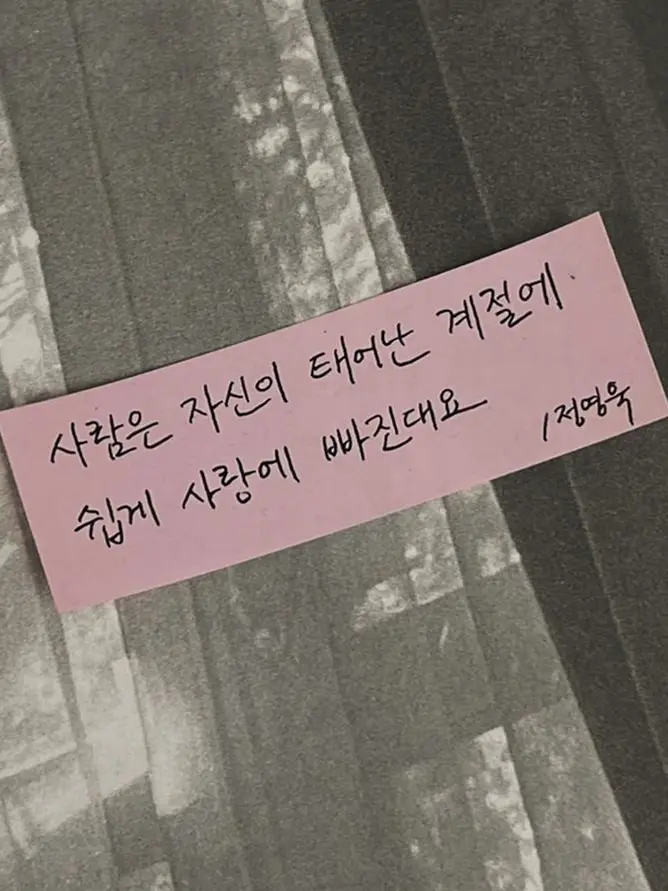 사람은 자신이 태어난 계절에
쉽게 사랑에 빠진대요
/정영욱